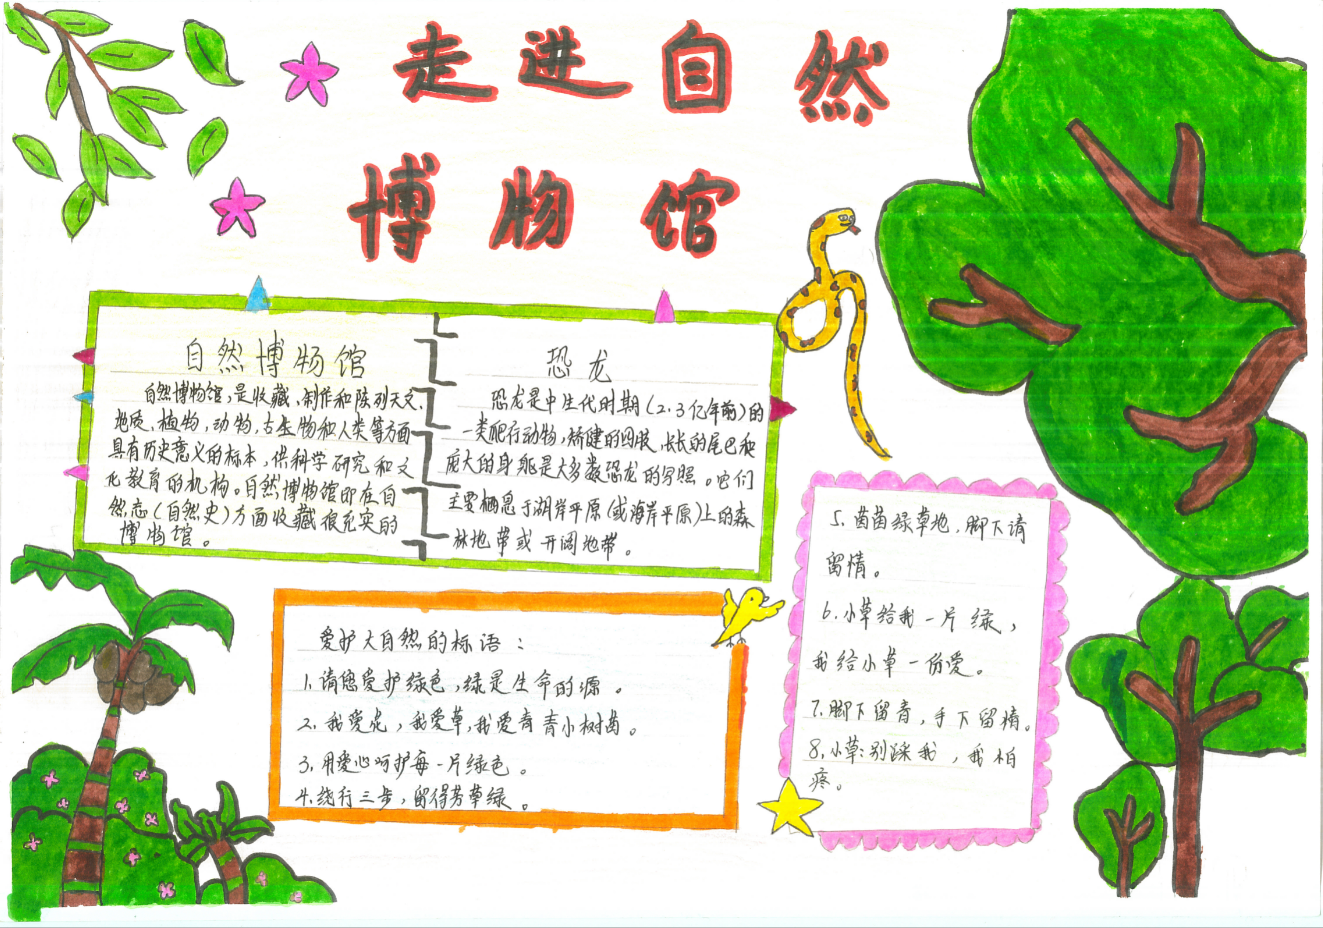 走进自然
博物馆
自然博物馆
自然博物馆，是收藏、制作和陈列天文、
地质、植物、动物、古生物和人类等方面
具有历史意义的标本，供科学研究和文
化教育的机构。自然博物馆即在自
然志（自然史）方面收藏很充实的
博物馆。
恐龙
恐龙是中生代时期（2.3亿年前）的
一类爬行动物，矫健的四肢、长长的尾巴和
庞大的身躯是大多数恐龙的写照。它们
主要栖息于湖岸平原（或海岸平原）上的森
林地带或开阔地带。
爱护大自然的标语：
1.请您爱护绿色，绿是生命的源。
2.我爱花，我爱草，我爱青青小树苗。
3.用爱心呵护每一片绿色。
4.绕行三步，留得芳草绿。
5.茵茵绿草地，脚下请
留情。
6.小草给我一片绿，
我给小草一份爱。
7.脚下留青，手下留情。
8.小草：别踩我，我怕
疼。